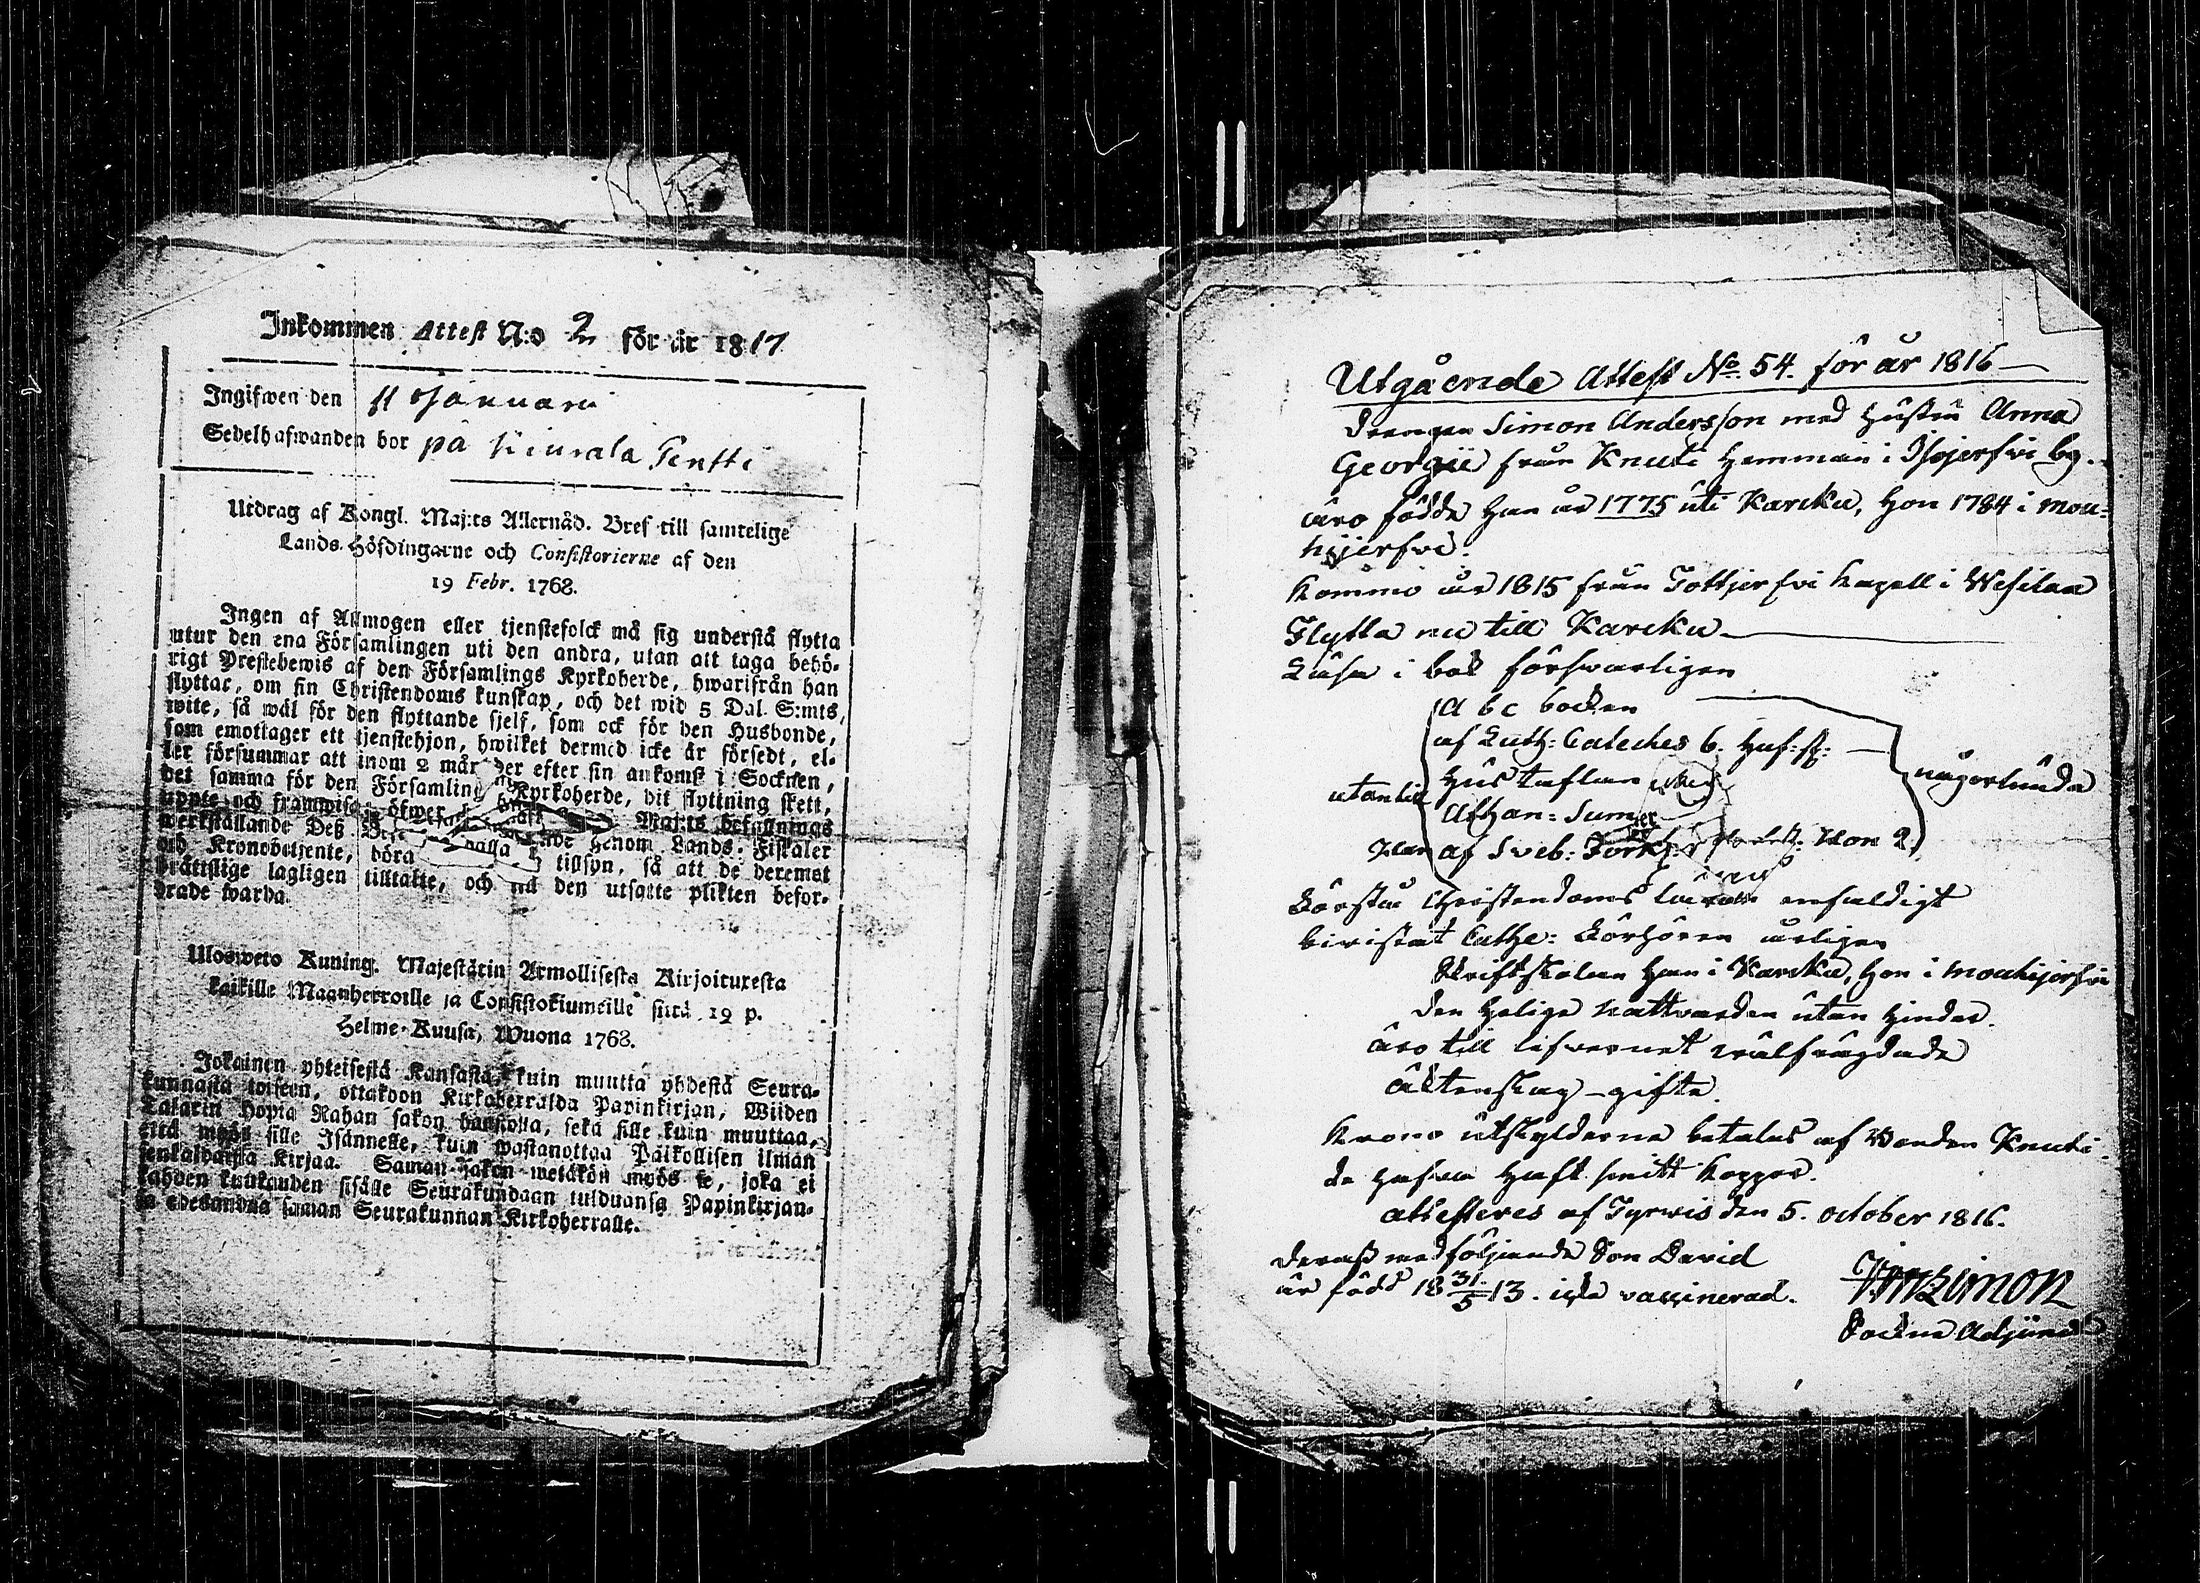 Inkommen Attest N:o 2 för år 1817
Ingifwen den 11 Januari
Sedelhafwanden bor på Kiurala Pentti
Utdrag af Kongl. Maj:ts Allernåd. Bref till samtelige
Lands-Höfdingarne och Consistorierne af den
19 Febr. 1768.
Ingen af Allmogen eller tjenstefolck må sig understå flytta
utur den ena Församlingen uti den andra, utan att taga behö-
rigt Prestebewis af den Församlings Kyrkoherde, hwarifrån han
flyttar, om sin Christendoms kunskap, och det wid 5 Dal. S:mts,
wite, så wäl för den flyttande sjelf, som ock för den Husbonde,
som emottager ett tjenstehjon, hwilket dermed icke är försedt, el-
ler försummar att inom 2 månader efter sin ankomst i Socknen,
det samma för den Församlings Kyrkoherde, dit flyttning skett,
uppte och framwisa; öfwer Maj:ts befallnings
werkställande Deß genom Lands-Fiskaler
och Kronobetjente, böra hålla tillsyn, så att de deremot
brättslige lagligen tilltalte, och till den utsatte plikten befor-
drade warda.
Uloswweto Kuning. Majestätin Armollisesta Kirjoituxesta
kaikille Maanherroille ja Consistoriumeille siitä 19 p.
Helme-Kuusa, Wuona 1768.
Jokainen yhteisestä Kansasta, kuin muutta yhdestä Seura-
kunnasta toiseen, ottakoon Kirkoherralda Papinkirjan, Wiiden
Talarin Hopia Rahan sakon haastolla, sekä sille kuin muuttaa,
että myös sille Isännelle, kuin wastanottaa Palkollisen ilman
senkaldaista Kirjaa. Saman sakon wetäkön myös se, joka ei
kahden kuukauden sisälle Seurakundaan tulduansa Papinkirjan-
sa edesanna saman Seurakunnan Kirkoherralle.
Utgående Attest No. 54. för år 1816
Drengen Simon Andersson med Hustru Anna
Georgii från Knuti Hemman i Isojerfwi by.
äro födde Han år 1775 uti Karcku, Hon 1784 i Mou-
hijerfvi.
Kommo år 1815 från Tottjerfvi Kapell i Wesilax
Flytta nu till Karcku
Läsa i bok försvarligen
A b c boken
af Luth: Catechis 6. Huf: st:
utantill Hus taflan
någorlunda
Athan: Sum
Han af Sveb: Förkl: Hon 2.
Förstå Christendoms läran enfaldigt
bivistat Cathe: Förhören årligen
Skriftskolan Han i Karcku, Hon i Mouhijerfvi
den Helige Nattvarden utan Hinder.
äro till lefvernet wälfrägdade
Äktenskap – gifte.
Krono utskylderne betalas af Bonden Knuti
de hafva haft smitt koppor.
attesteres af Tyrwis den 5. October 1816.
Deras medföljande Son David
är född 18 31/5 13. icke vaccinerad.
Sockne Adjunct